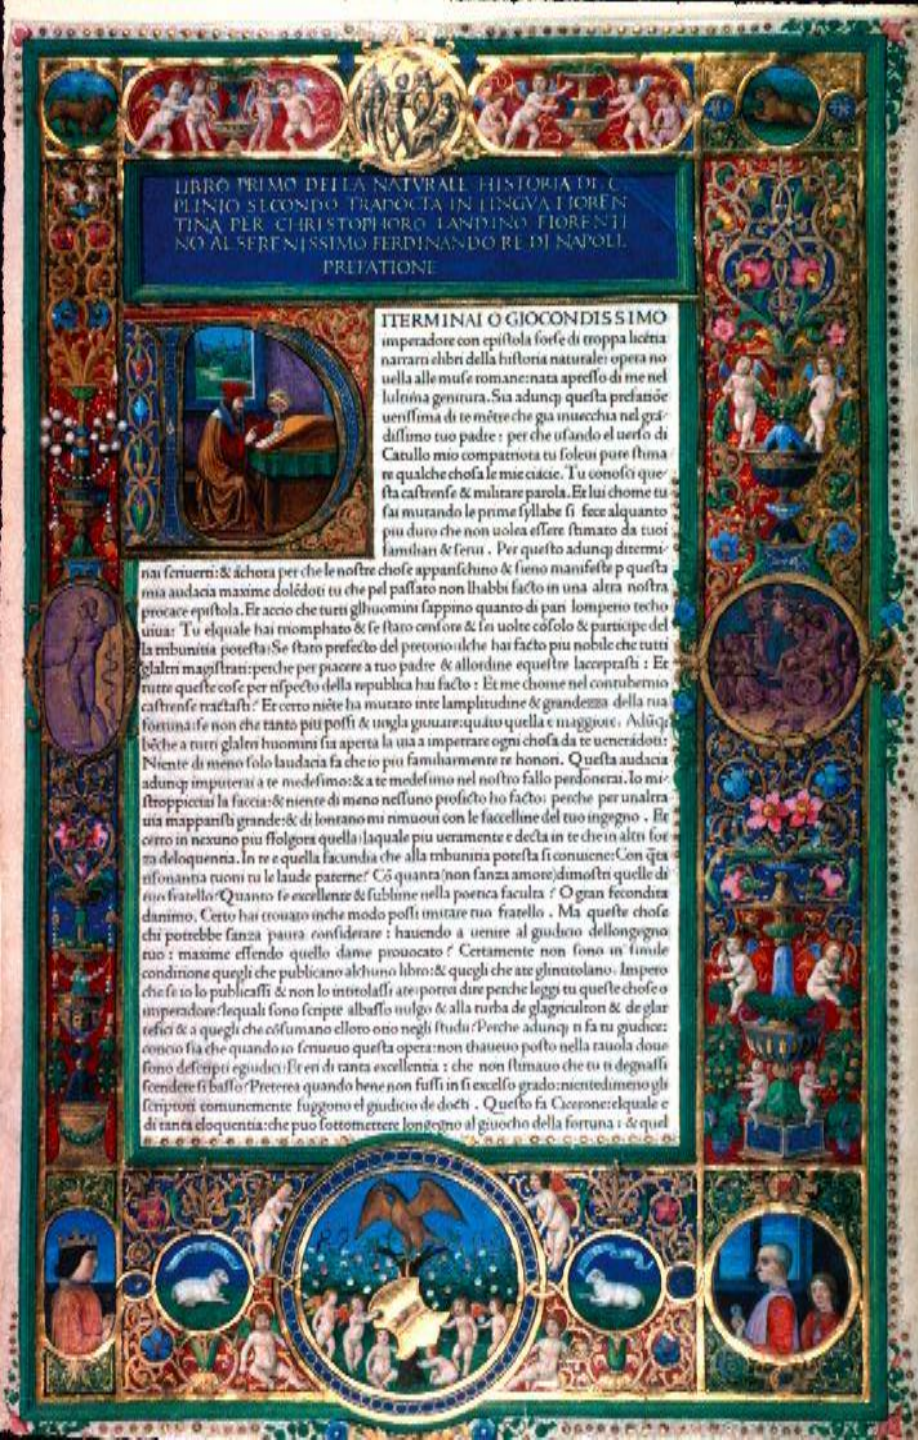 LIBRO PRIMO DELLA NATVRALE HISTORIA DI C
PLINIO SECONDO TRADOCTA IN LINGVA FIOREN
TINA PER CHRISTOPHORO LANDINO FIORENTI
NO AL SERENISSIMO FERDINANDO RE DI NAPOLI.
PREFATIONE
ITERMINAI O GIOCONDISSIMO
imperadore con epistola forse di troppa licētia
narrarti elibri della historia naturale: opera no
uella alle muse romane: nata apresso di me nel
lultima genitura. Sia adunq; questa prefatiōe
uerissima di te mētre che gia inuecchia nel grā
dissimo tuo padre: per che usando el uerso di
Catullo mio compatriota tu soleui pure stima
re qualche chosa le mie ciācie. Tu conosci que
sta castrense & militare parola. Et lui chome tu
sai mutando le prime syllabe si fece alquanto
piu duro che non uolea essere stimato da tuoi
familiari & serui. Per questo adunq; ditermi
nai scriuerti: & āchora per che le nostre chose apparischino & sieno manifeste p questa
mia audacia maxime dolēdoti tu che pel passato non lhabbi facto in una altra nostra
procace epistola. Et accio che tutti glhuomini sappino quanto di pari lomperio techo
uiua: Tu elquale hai triomphato & se stato censore & sei uolte cōsolo & participe del
la tribunitia potesta: Se stato prefecto del pretorio: ilche hai facto piu nobile che tutti
glaltri magistrati: perche per piacere a tuo padre & allordine equestre laccceptasti: Et
tutte queste cose per rispecto della republica hai facto: Et me chome nel contubernio
castrense tractasti? Et certo niēte ha mutato inte lamplitudine & grandezza della tua
fortuna: se non che tanto piu possi & uogla giouare: quāto quella e maggiore. Adūq;
bēche a tutti glaltri huomini sia aperta la uia a impetrare ogni chosa da te uenerādoti:
Niente di meno solo laudacia fa che io piu familiarmente te honori. Questa audacia
adunq; imputerai a te medesimo: & a te medesimo nel nostro fallo perdonerai. Io mi
stroppicciai la faccia: & niente di meno nessuno proficto ho facto: perche per unaltra
uia mapparisti grande: & di lontano mi rimuoui con le faccelline del tuo ingegno. Et
certo in nexuno piu ffolgora quella: laquale piu ueramente e decta in te che in altri for
za deloquentia. In te e quella facundia che alla tribunitia potesta si conuiene: Con q̄ta
risonantia tuoni tu le laude paterne? Cō quanta (non sanza amore) dimostri quelle di
tuo fratello? Quanto se excellente & sublime nella poetica faculta? O gran fecondita
danimo. Certo hai trouato inche modo possi imitare tuo fratello. Ma queste chose
chi potrebbe sanza paura considerare: hauendo a uenire al giudicio dellongegno
tuo: maxime essendo quello dame prouocato? Certamente non sono in simile
conditione quegli che publicano alchuno libro: & quegli che ate glintitolano. Impero
che se io lo publicassi & non lo intitolassi ate: potrei dire perche leggi tu queste chose o
imperadore? lequali sono scripte albasso uulgo & alla turba de glagricultori & de glar
tefici & a quegli che cōsumano elloro otio negli studii? Perche adunq; ti fa tu giudice:
concio sia che quando io scriueuo questa opera: non thaueuo posto nella tauola doue
sono descripti egiudici: Et eri di tanta excellentia: che non stimauo che tu ti degnassi
scendere si basso? Preterea quando bene non fussi in si excelso grado: nientedimeno gli
scriptori comunemente fuggono el giudicio de docti. Questo fa Cicerone: elquale e
di tanta eloquentia: che puo sottomettere longegno al giuocho della fortuna: & quel